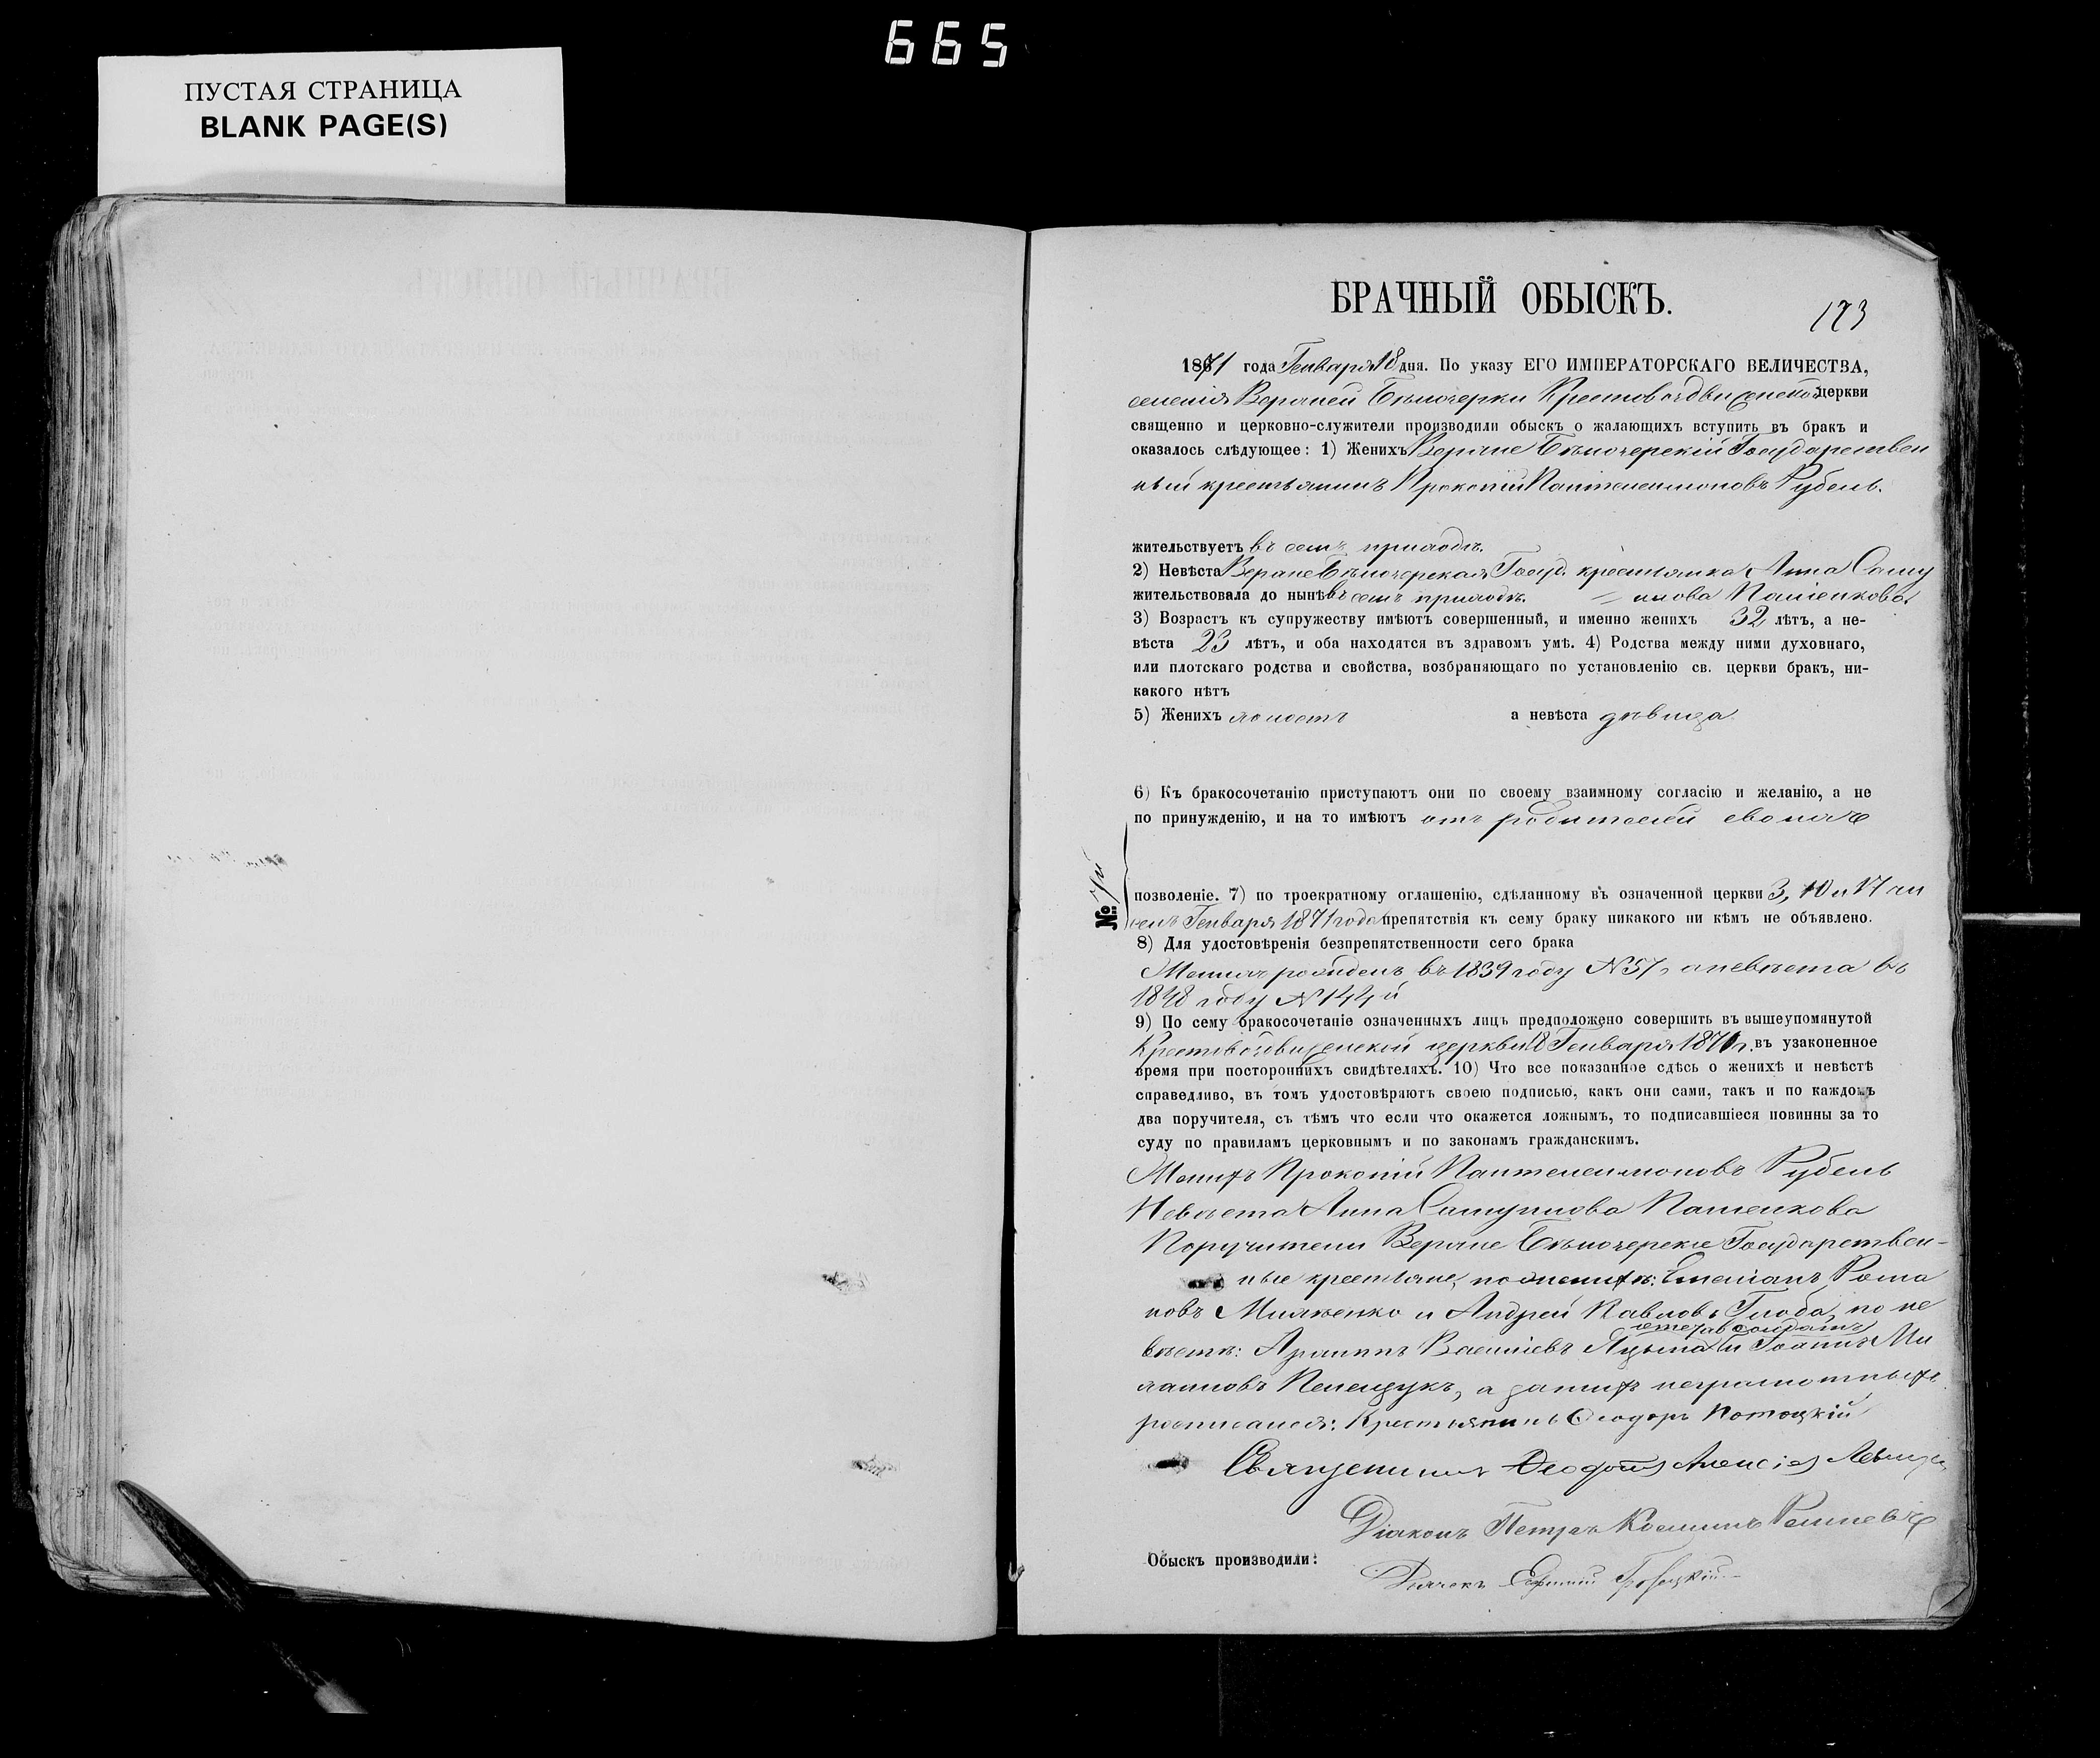 665
ПУСТАЯ СТРАНИЦА
BLANK PAGE(S)
БРАЧНЫЙ ОБЫСКЪ.
1871 года Генваря 18 дня. По указу ЕГО ИМПЕРАТОРСКАГО ВЕЛИЧЕСТВА,
селенія Верхней Бѣлозерки Крестовоздвиженской церкви
священно и церковно-служители производили обыскъ о жалающихъ вступить въ бракъ и
оказалось слѣдующее: 1) Женихъ Верхне Бѣлозерскій Государствен
ный крестьянинъ Прокопій Пантелеимоновъ Рубель.
жительствуетъ въ семъ приходѣ.
2) Невѣста Верхне Бѣлозерская Госуд. крестьянка Анна Сату
жительствовала до нынѣ въ семъ приходѣ. = нинова Пашенкова.
3) Возрастъ къ супружеству имѣютъ совершенный, и именно женихъ 32 лѣтъ, а не-
вѣста 23 лѣтъ, и оба находятся въ здравомъ умѣ. 4) Родства между ними духовнаго,
или плотскаго родства и свойства, возбраняющаго по установленію св. церкви бракъ, ни-
какого нѣтъ
5) Женихъ холостъ а невѣста дѣвица
6) Къ бракосочетанію приступаютъ они по своему взаимному согласію и желанію, а не
по принужденію, и на то имѣютъ отъ родителей своихъ
№
позволеніе. 7) по троекратному оглашенію, сдѣланному въ означенной церкви 3, 10 и 17 чи
селъ Генваря 1871 года препятствія къ сему браку никакого ни кѣмъ не объявлено.
8) Для удостовѣренія безпрепятственности сего брака
Женихъ рожденъ въ 1839 году № 57, а невѣста въ
1848 году № 144й
9) По сему бракосочетаніе означенныхъ лицъ предположено совершить въ вышеупомянутой
Крестовоздвиженской церкви 18 Генваря 1871 г. въ узаконенное
время при постороннихъ свидѣтеляхъ. 10) Что все показанное сдѣсь о женихѣ и невѣстѣ
справедливо, въ томъ удостовѣряютъ своею подписью, какъ они сами, такъ и по каждомъ
два поручителя, съ тѣмъ что если что окажется ложнымъ, то подписавшіеся повинны за то
суду по правиламъ церковнымъ и по законамъ гражданскимъ.
Женихъ Прокопій Пантелеимоновъ Рубель
Невѣста Анна Сатунинова Пашенкова
Поручители Верхне Бѣлозерскіе Государствен-
ные крестьяне, по женихѣ: Емеліанъ Рома
новъ и Андрей Павловъ Глоба, по не
вѣстѣ: Архиппъ Василіевъ и Іоаннъ Ми
хаиловъ Пелещукъ, а за нихъ неграмотныхъ
росписался: Крестьянинъ Ѳеодоръ Потоцкій
Священникъ Ѳеодоръ
Діаконъ Петръ Косминъ
Обыскъ производили:
Дьячекъ